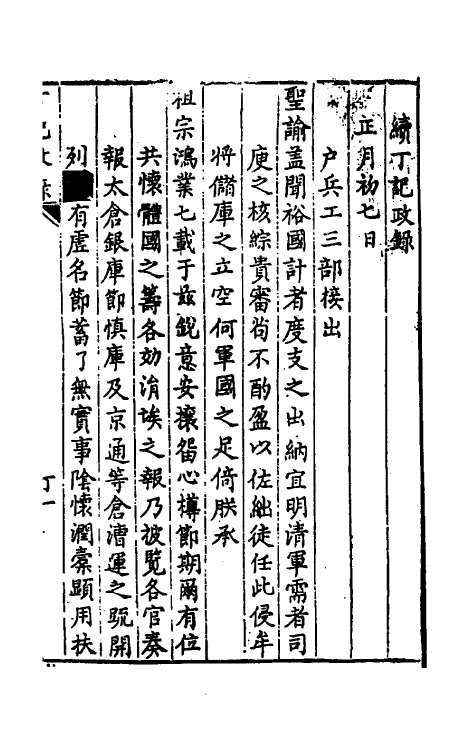 續丁記政錄
正月初七日
户兵工三部接出
聖諭盖聞裕國計者度支之出納宜明清軍需者司
庾之核綜貴審茍不酌盈以佐絀徒任此侵牟
將儲庫之立空何軍國之足倚朕承
祖宗鴻業七載于兹銳意安攘留心樽節期爾有位
共懷體國之籌各効涓埃之報乃披覽各官奏
報太倉銀庫節慎庫及京通等倉漕運之䟽開
列有虛名節蓄了無實事陰懷潤橐顯用扶